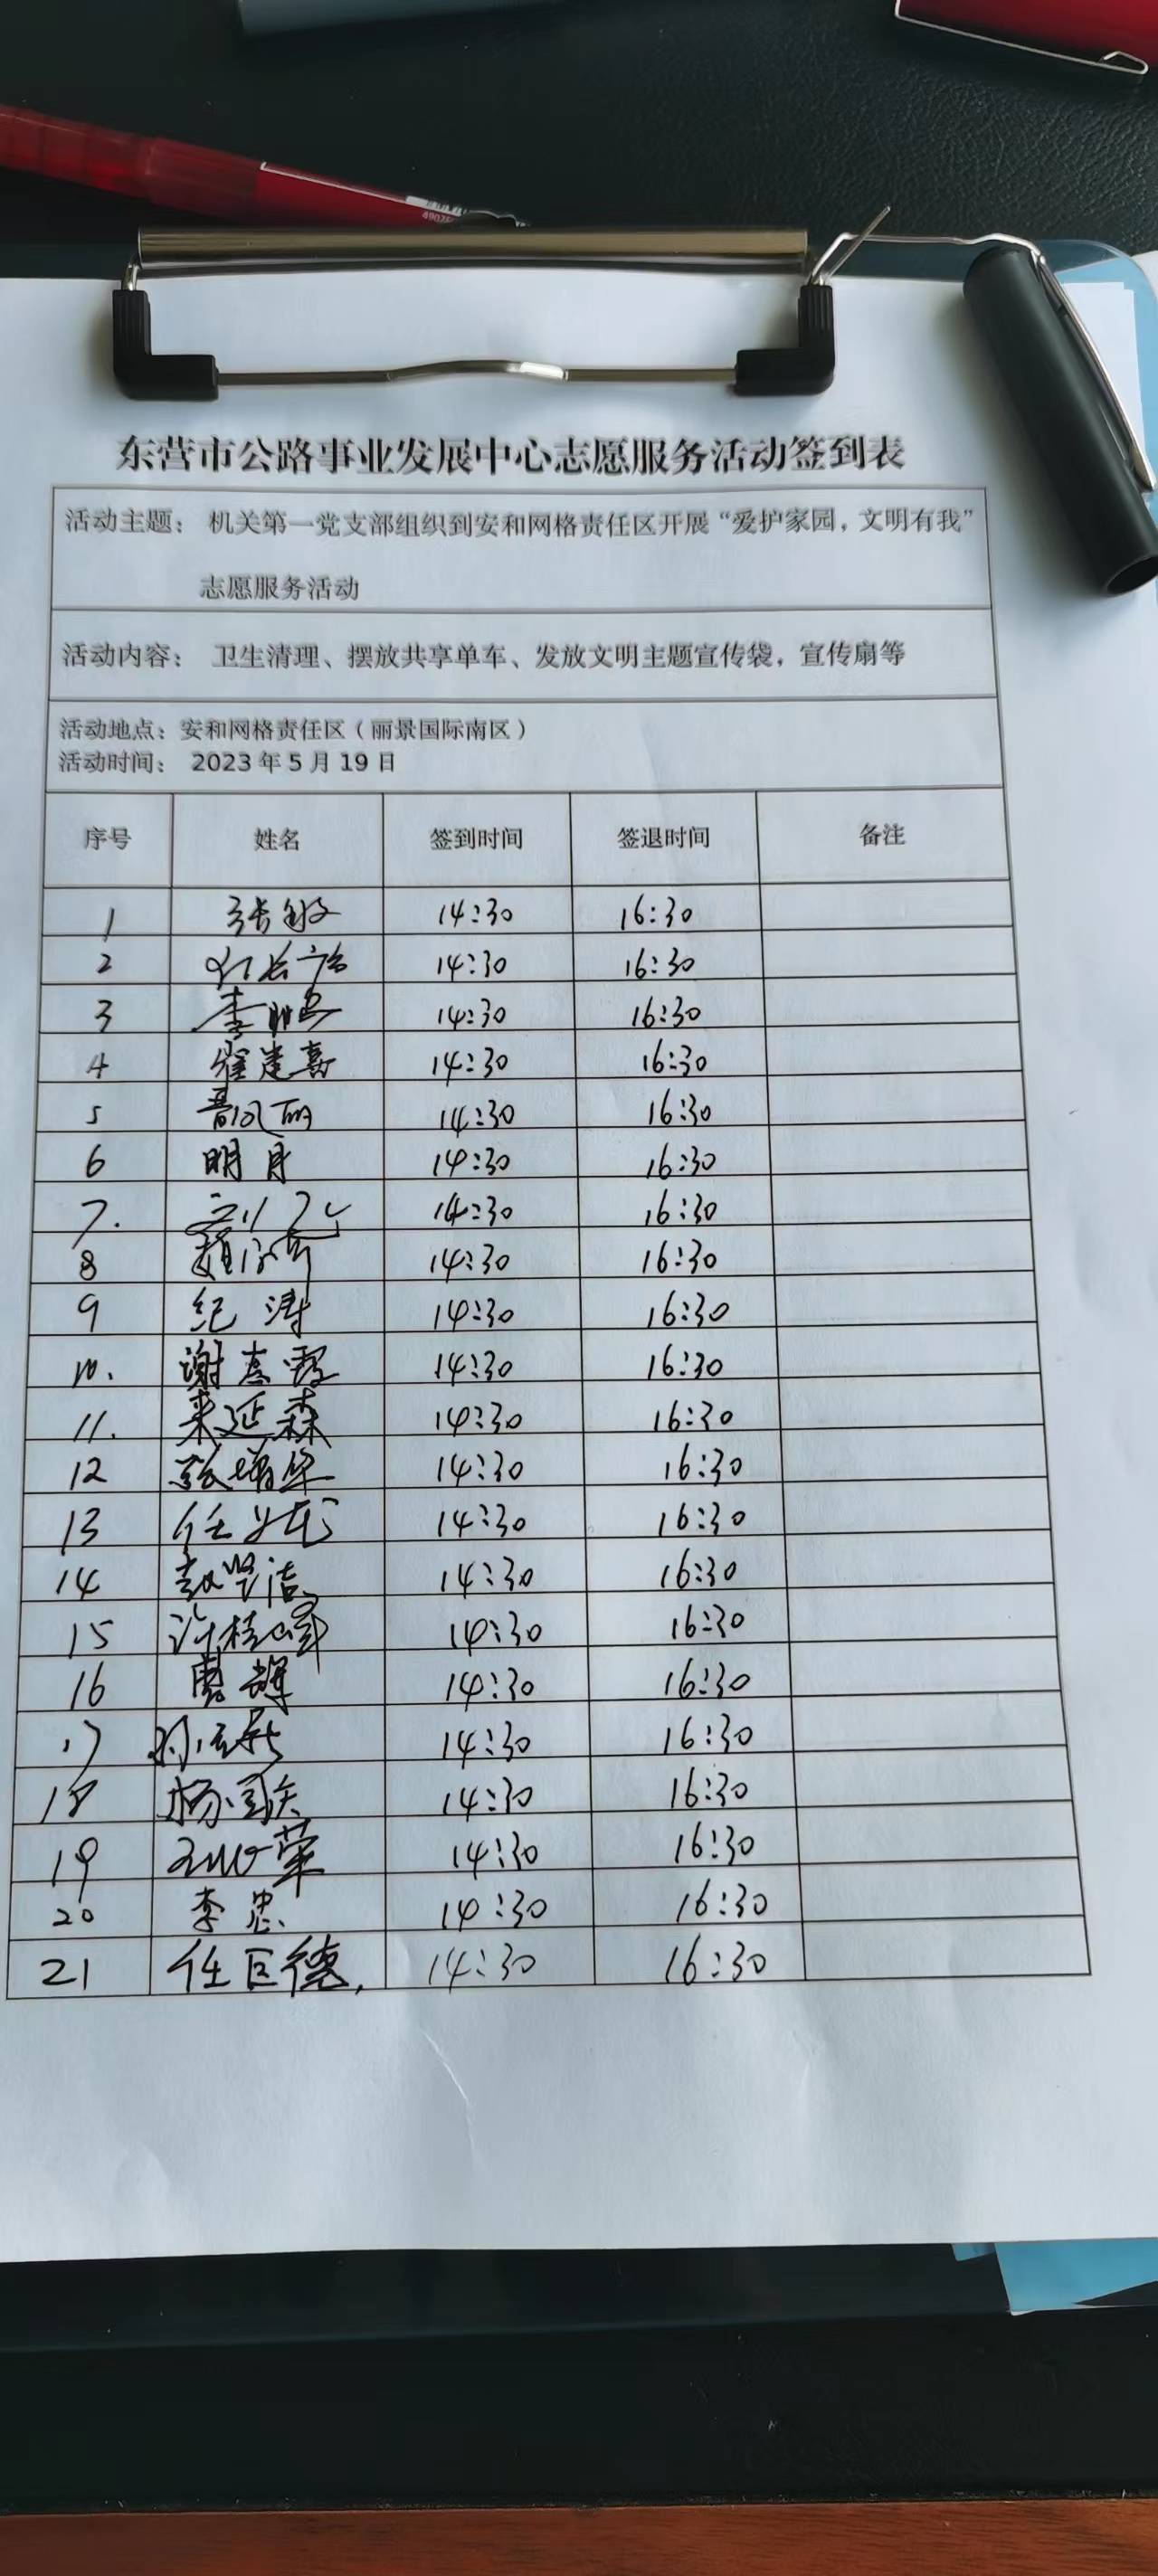 东营市公路事业发展中心志愿服务活动签到表
活动主题： 机关第一党支部组织到安和网格责任区开展“爱护家园，文明有我”
志愿服务活动
活动内容： 卫生清理、摆放共享单车、发放文明主题宣传袋，宣传扇等
活动地点：安和网格责任区（丽景国际南区）
活动时间： 2023年5月19日
序号 姓名 签到时间 签退时间 备注
1 张敏 14:30 16:30
2 14:30 16:30
3 14:30 16:30
4 崔建嘉 14:30 16:30
5 14:30 16:30
6 明月 14:30 16:30
7. 14:30 16:30
8 14:30 16:30
9 纪涛 14:30 16:30
10. 14:30 16:30
11. 来延森 14:30 16:30
12 14:30 16:30
13 14:30 16:30
14 14:30 16:30
15 许桂峰 14:30 16:30
16 曹辉 14:30 16:30
17 14:30 16:30
18 14:30 16:30
19 14:30 16:30
20 李忠 14:30 16:30
21 任巨德 14:30 16:30